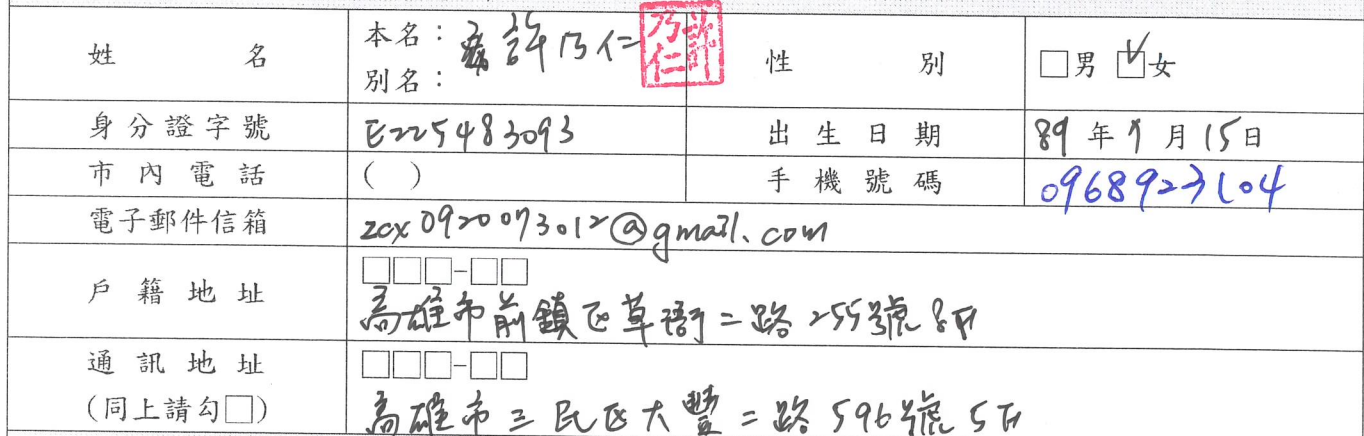 姓名
本名：許乃仁
別名：
許乃仁
性別
□男 ☑女
身分證字號
E225483093
出生日期
89年9月15日
市內電話
( )
手機號碼
0968923104
電子郵件信箱
zcx0920073012@gmail.com
戶籍地址
□□□-□□
高雄市前鎮區草衙二路255號8F
通訊地址
(同上請勾□)
□□□-□□
高雄市三民區大豐二路596號5F